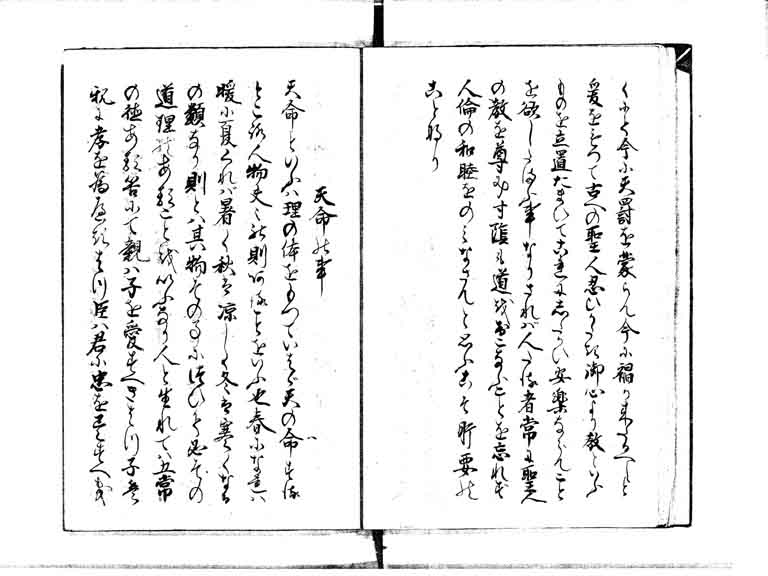 くふて今に天罰を蒙らん今に禍り来たらんと
爰をもつて古への聖人忍ひたまはぬ御心より教といふ
ものを立置たまひてこれにしたかひ安楽ならんこと
を欲したまふ事なりされバ人たる者常に聖人
の教を尊み寸陰も道をおこなふことを忘れす
人倫の和睦をのみなさんと思ふこそ肝要の
ことなり
天命の事
天命といふハ理の体をもつていはゞ天の命する
ところ人物夫々の則あることをいふ也春になれハ
暖に夏くれバ暑く秋は凉しく冬は寒くなる
の類なり則とハ其物その事に従ひて必その
道理のあることをいふなり人と生れてハ五常
の徳ある筈にて親ハ子を愛すへきはつ子は
親に孝を為へきはつ臣ハ君に忠を尽すへき